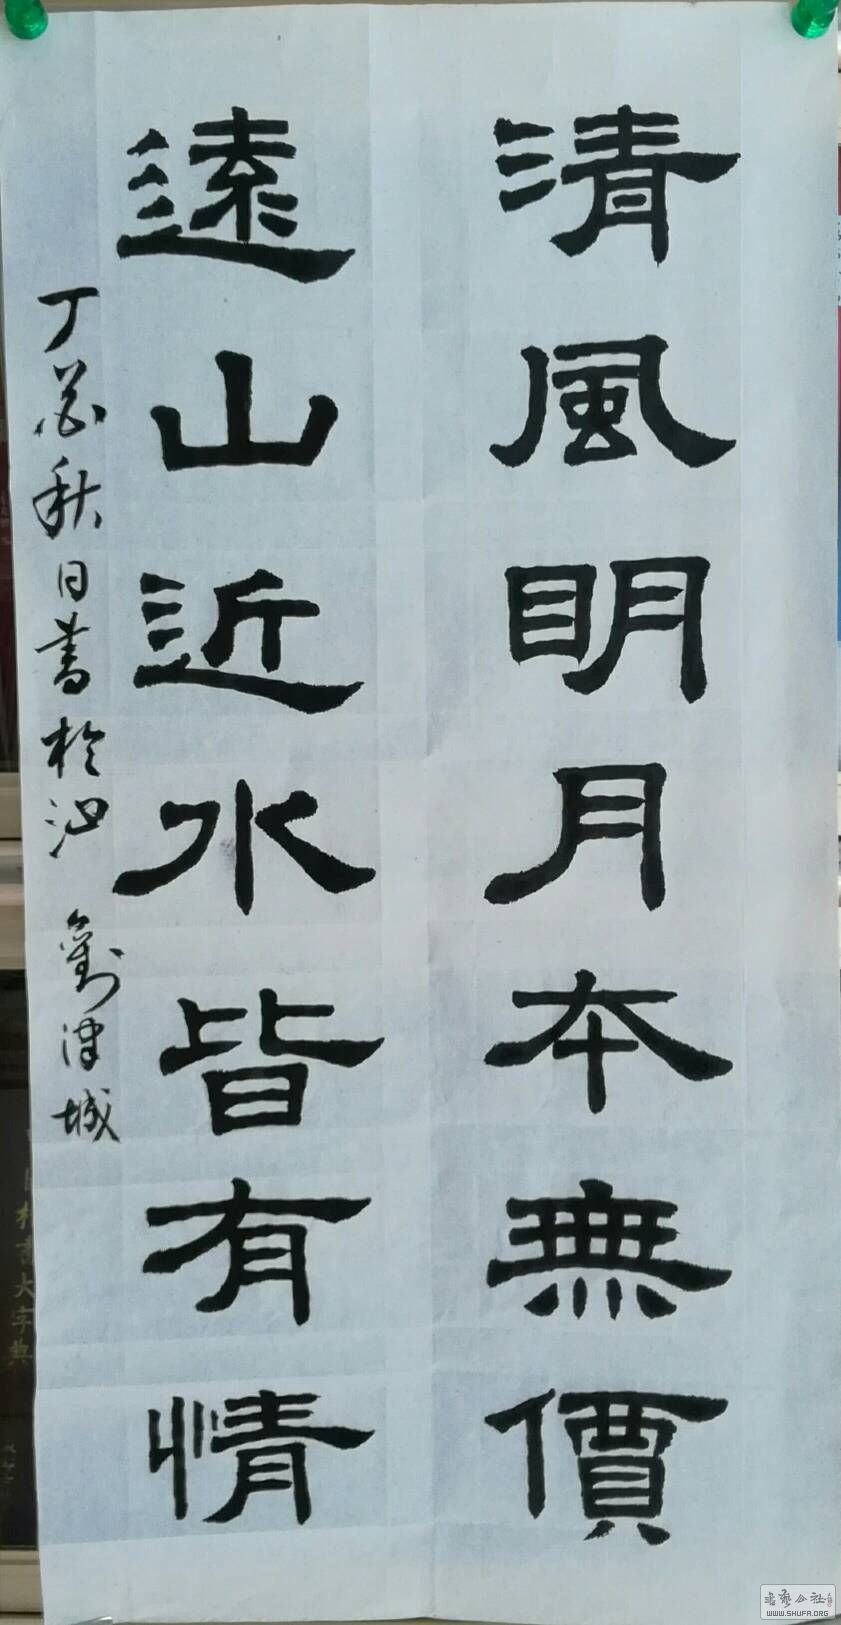 清風明月本無價
遠山近水皆有情
丁酉秋日書於
劉津城
書大字典
书艺公社
WWW.SHUFA.ORG